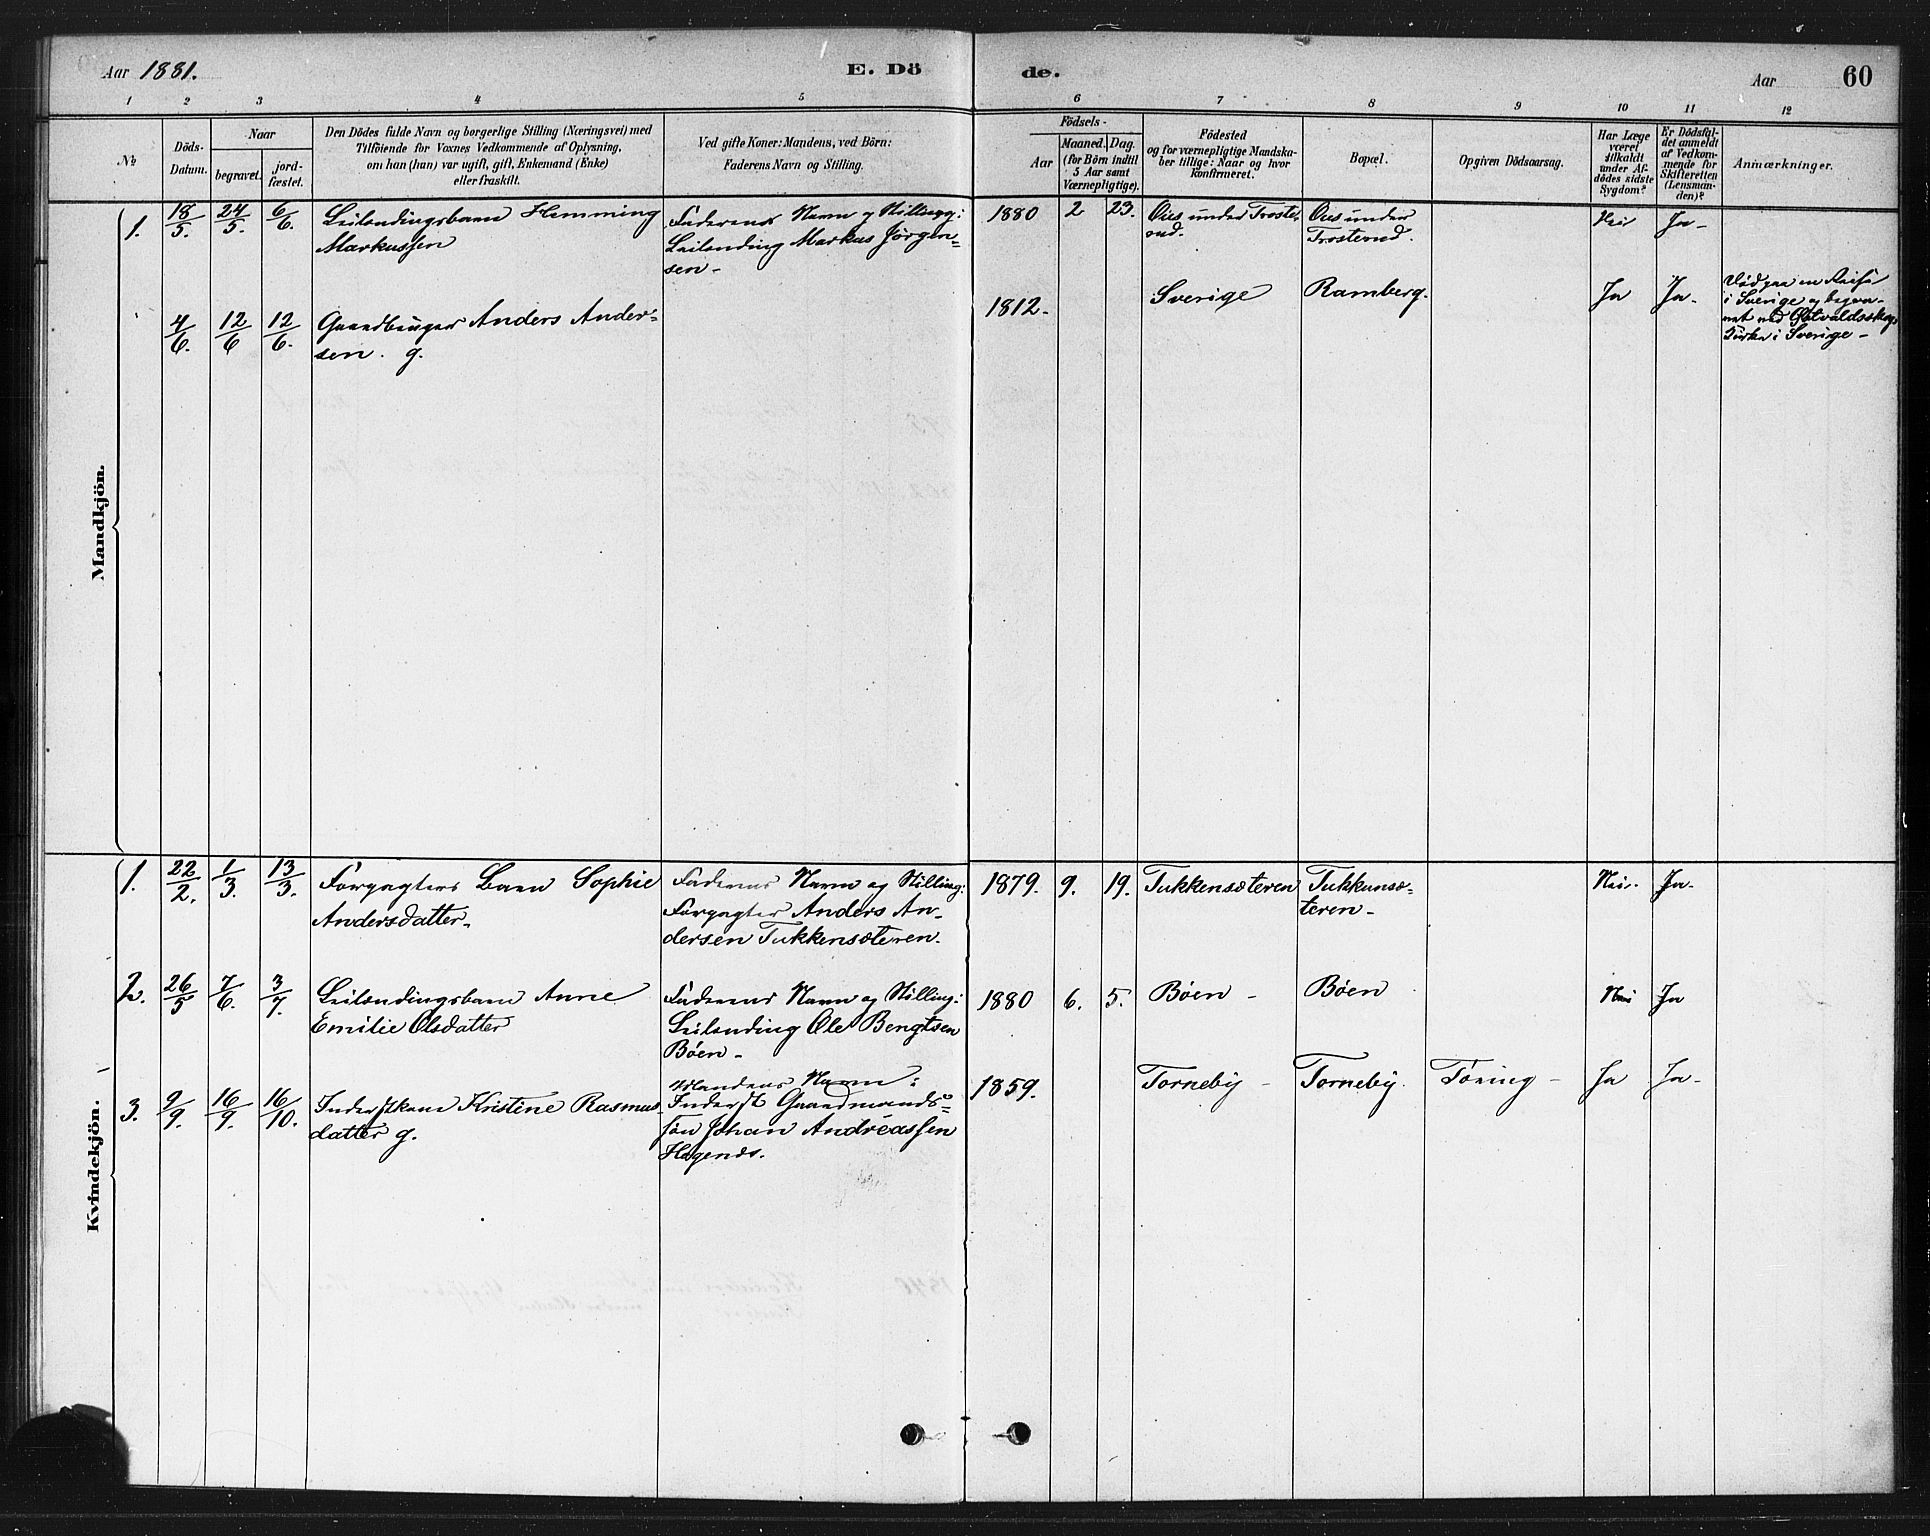 Aar 1881.
E. Dö
de.
Aar
60
1 2 3 4 5 6 7 8 9 10 11 12
No
Döds-
Datum.
Naar
begravet.
jord-
fæstet.
Den Dödes fulde Navn og borgerlige Stilling (Næringsvei) med
Tilföiende for Voxnes Vedkommende af Oplysning,
om han (hun) var ugift, gift, Enkemand (Enke)
eller fraskilt.
Ved gifte Koner: Mandens, ved Börn:
Faderens Navn og Stilling.
Födsels-
Aar
Maaned. Dag.
(for Börn indtil
5 Aar samt
Værnepligtige).
Födested
og for værnepligtige Mandska-
ber tillige: Naar og hvor
konfirmeret.
Bopæl.
Opgiven Dödsaarsag.
Har Læge
været
tilkaldt
under Af-
dödes sidste
Sygdom?
Er Dödsfal-
det anmeldt
af Vedkom-
mende for
Skifteretten
(Lensman-
den)?
Anmærkninger.
Mandkjön.
1.
18/5.
24/5.
6/6.
Leilændingsbarn Hemming
Markussen
Faderens Navn og Stilling:
Leilænding Markus Jörgen=
sen-
1880 2 23.
under Troste
rud.
under
Trosterud.
Nei
Ja-
4/6.
12/6
12/6.
Gaardbruger Anders Ander=
sen. g.
1812.
Sverige
Ramberg.
Ja
Ja.
Död paa en Reise
i Sverige og begra-
vet ved
Kirke i Sverige-
Kvindekjön.
1.
22/2.
1/3.
13/3.
Forpagters Barn Sophie
Andersdatter.
Faderens Navn og Stilling:
Forpagter Anders An-
dersen Tukkensæteren.
1879. 9. 19.
Tukkensæteren
Tukkensæ=
teren-
Nei.
Ja-
2.
26/5
7/6.
3/7.
Leilændingsbarn Anne
Emilie Olsdatter
Faderens Navn og Stilling:
Leilænding Ole Bengtsen
Böen-
1880 6. 5.
Böen-
Böen
Nei
Ja
3.
9/9.
16/9.
16/10.
Inderstkone Kristine Rasmus
datter g.
Mandens Navn:
Inderst Gaardmands=
sön Johan Andreassen
1859.
Torneby-
Torneby.
Tæring-
Ja
Ja-